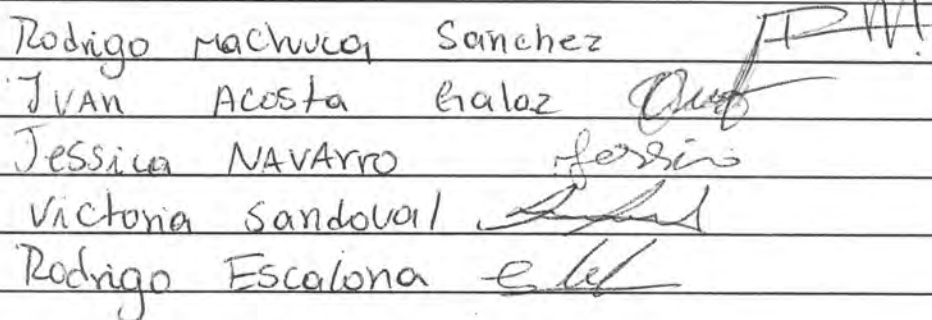 Rodrigo Machuca Sanchez
IVAN Acosta Galaz
Jessica NAVArro
Victoria Sandoval
Rodrigo Escalona